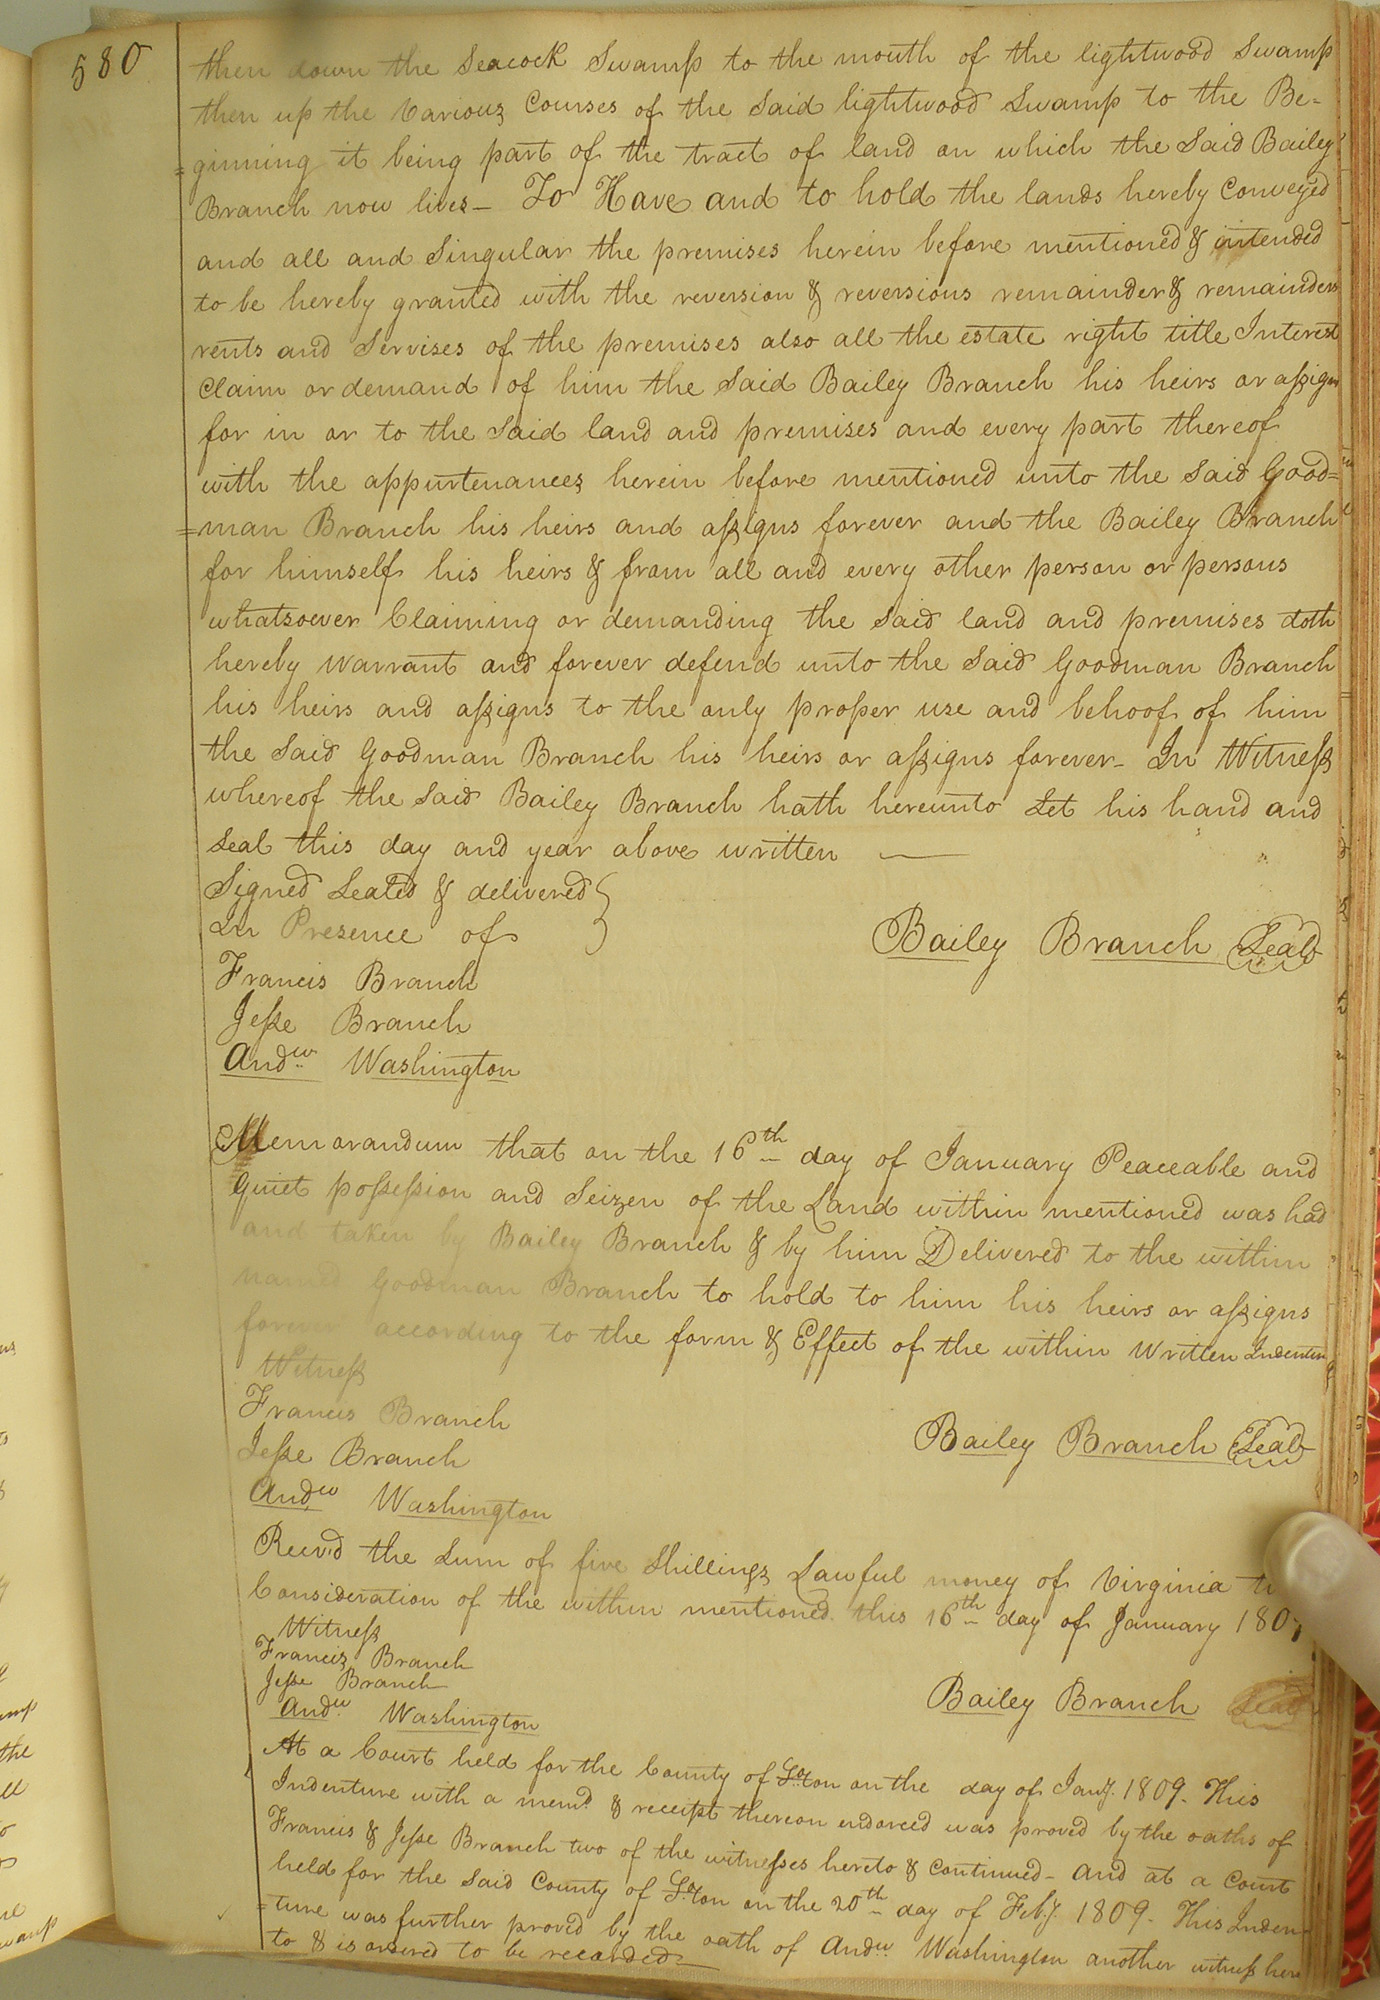 580
then down the Seacock Swamp to the mouth of the lightwood Swamp
then up the Various Courses of the Said lightwood Swamp to the Be-
=ginning it being part of the tract of land on which the Said Bailey
Branch now lives – To Have and to hold the lands hereby Conveyed
and all and Singular the premises herein before mentioned & intended
to be hereby granted with the reversion & reversions remainder & remainders
rents and Servises of the premises also all the estate right title Interest
Claim or demand of him the Said Bailey Branch his heirs or assigns
for in or to the Said land and premises and every part thereof
with the appurtenances herein before mentioned unto the Said Good=
=man Branch his heirs and assigns forever and the Bailey Branch
for himself his heirs & from all and every other person or persons
whatsoever Claiming or demanding the Said land and premises doth
hereby Warrant and forever defend unto the Said Goodman Branch
his heirs and assigns to the only proper use and behoof of him
the Said Goodman Branch his heirs or assigns forever – In Witness
whereof the Said Bailey Branch hath hereunto Set his hand and
Seal this day and year above written —
Signed Sealed & delivered }
In Presence of
Bailey Branch Seal
Francis Branch
Jesse Branch
Andw Washington
Memorandum that on the 16th day of January Peaceable and
Quiet possession and Seizen of the Land within mentioned was had
and taken by Bailey Branch & by him Delivered to the within
named Goodman Branch to hold to him his heirs or assigns
forever according to the form & Effect of the within Written Indenture
Witness
Francis Branch
Bailey Branch Seal
Jesse Branch
Andw Washington
Recvd the Sum of five Shillings Lawful money of Virginia
Consideration of the within mentioned this 16th day of January 1807
Witness
Francis Branch
Jesse Branch
Bailey Branch Seal
Andw Washington
At a Court held for the County of Soton on the day of Jany. 1809. This
Indenture with a memd & receipt thereon endorced was proved by the oaths of
Francis & Jesse Branch two of the witnesses hereto & Continued – And at a Court
held for the Said County of Soton on the 20th day of Feby. 1809. This Inden-
=ture was further proved by the oath of Andw Washington another witness here
to & is ordered to be recorded –